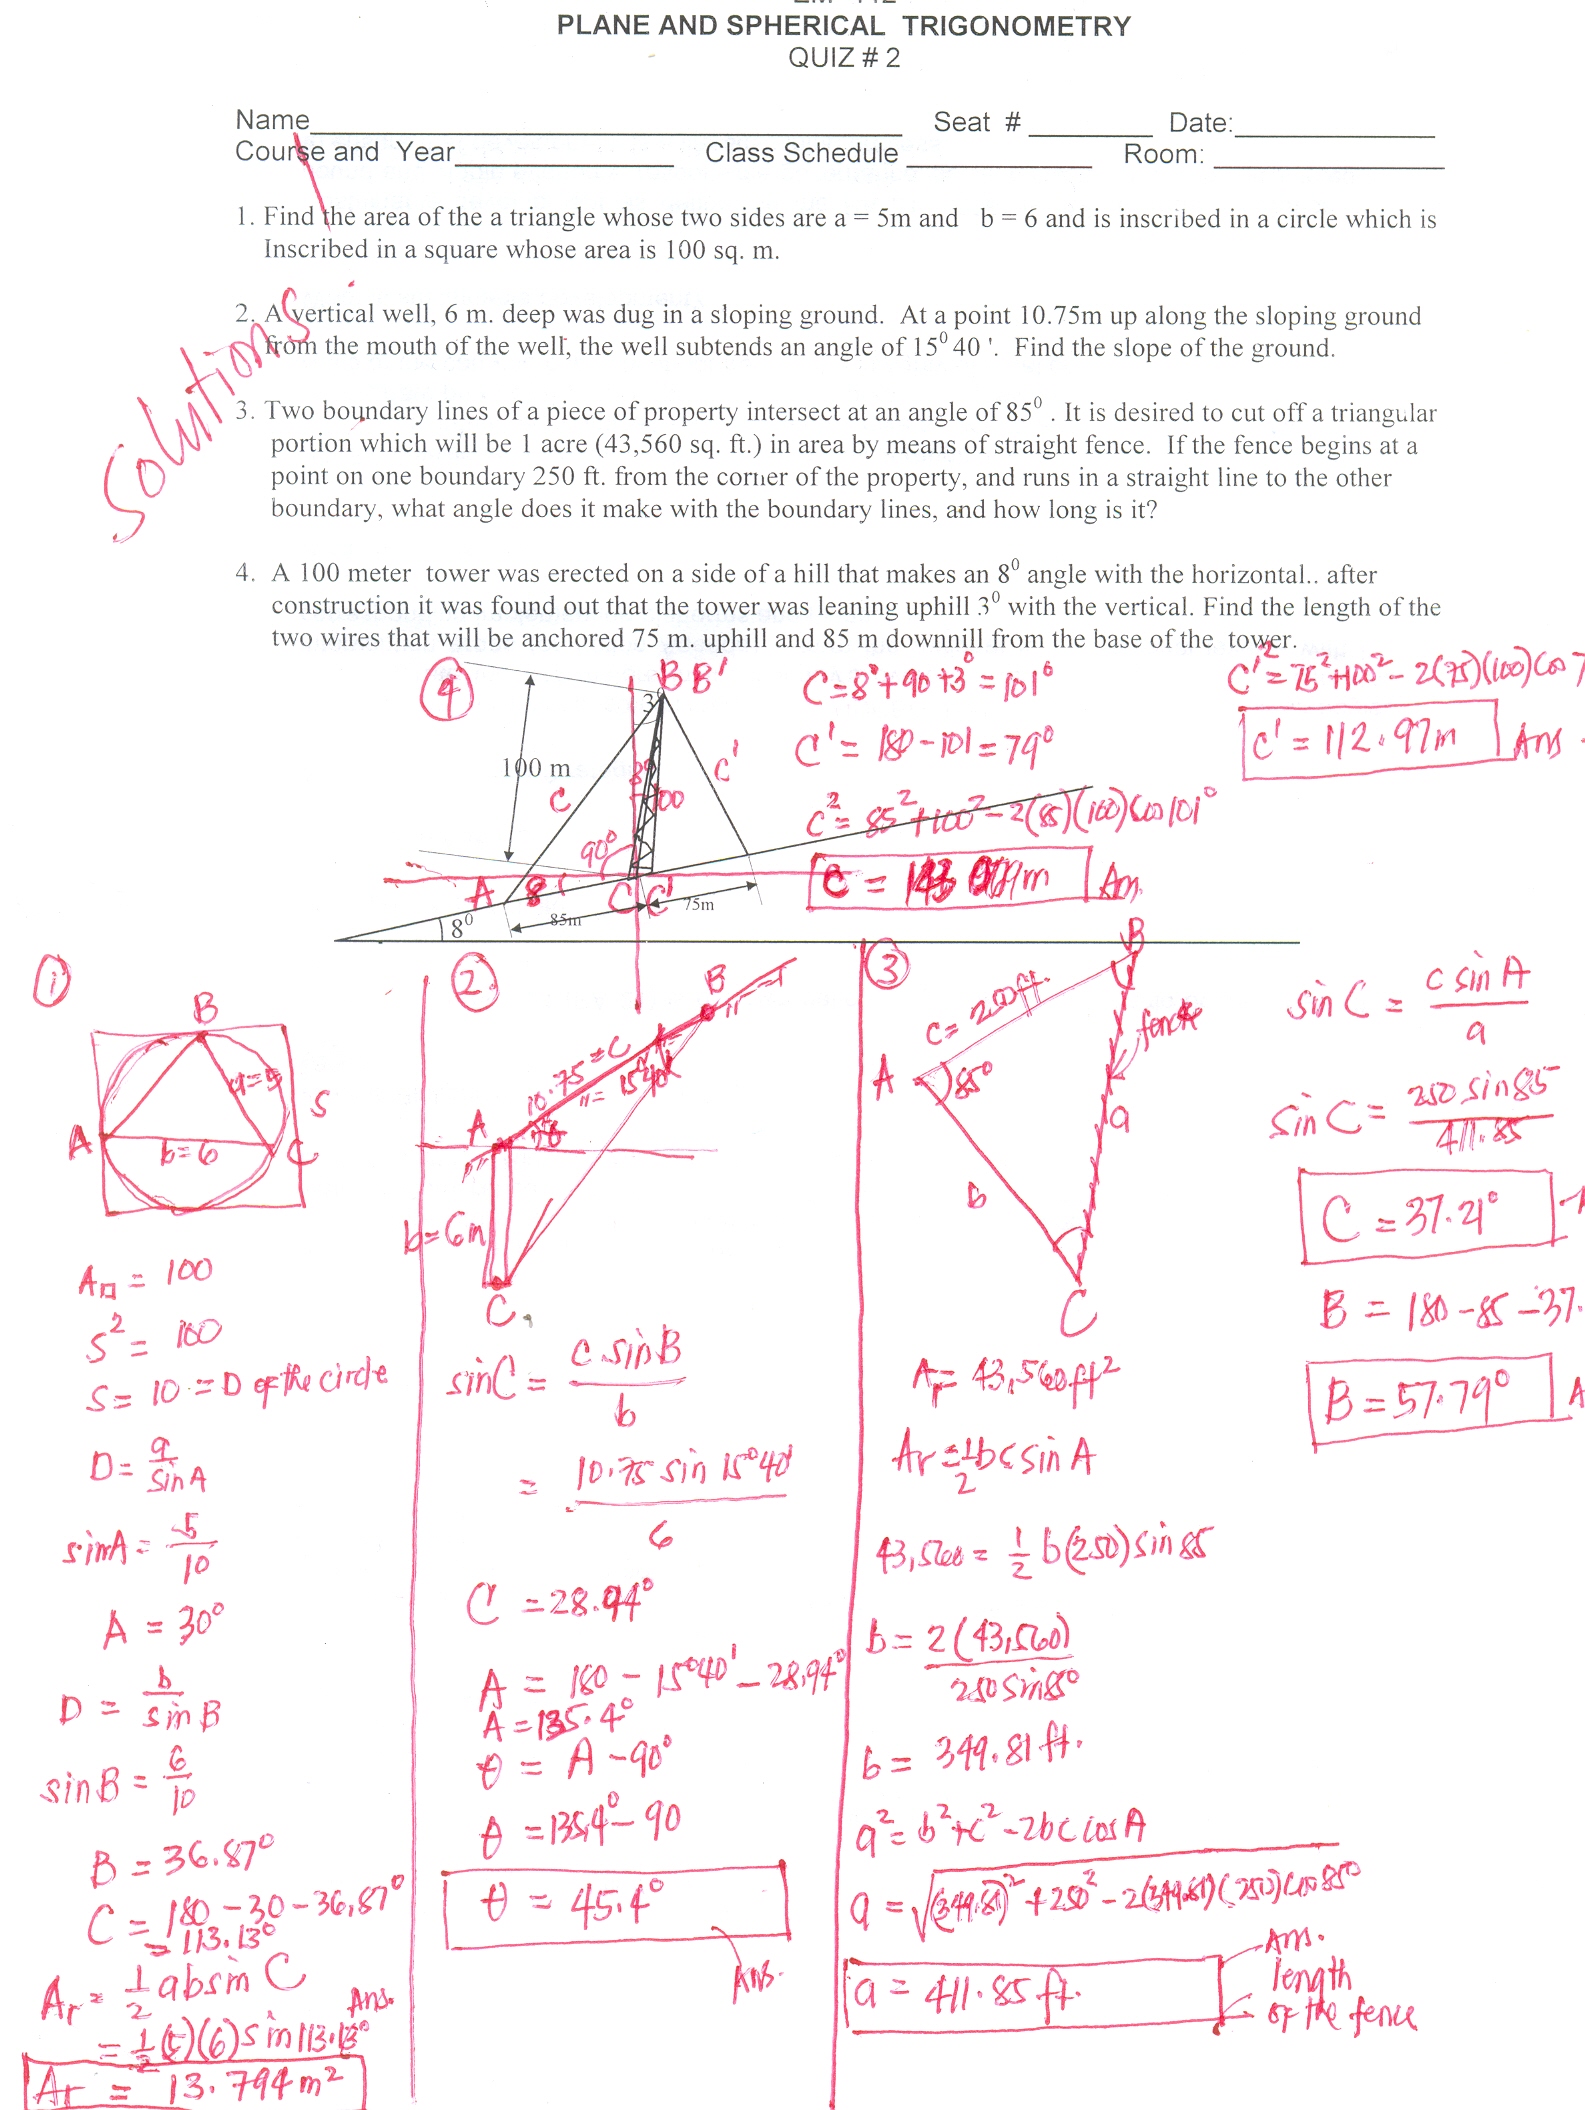 PLANE AND SPHERICAL TRIGONOMETRY
QUIZ # 2
Name Seat # Date:
Course and Year Class Schedule Room:
1. Find the area of the a triangle whose two sides are a = 5m and b = 6 and is inscribed in a circle which is
Inscribed in a square whose area is 100 sq. m.
2. A vertical well, 6 m. deep was dug in a sloping ground. At a point 10.75m up along the sloping ground
from the mouth of the well, the well subtends an angle of 15⁰ 40 '. Find the slope of the ground.
3. Two boundary lines of a piece of property intersect at an angle of 85⁰ . It is desired to cut off a triangular
portion which will be 1 acre (43,560 sq. ft.) in area by means of straight fence. If the fence begins at a
point on one boundary 250 ft. from the corner of the property, and runs in a straight line to the other
boundary, what angle does it make with the boundary lines, and how long is it?
4. A 100 meter tower was erected on a side of a hill that makes an 8⁰ angle with the horizontal.. after
construction it was found out that the tower was leaning uphill 3⁰ with the vertical. Find the length of the
two wires that will be anchored 75 m. uphill and 85 m downhill from the base of the tower.
Solutions
4
B B'
3
100 m
C
C'
100
90°
A 8
C C'
85m
75m
8⁰
C = 8° + 90 + 3° = 101°
C' = 180 - 101 = 79°
C² = 85² + 100² - 2(85)(100) cos 101°
Ans.
C'² = 75² + 100² - 2(75)(100) cos 7
C' = 112.97m Ans.
1
B
a = 5
S
A
b = 6
C
A□ = 100
S² = 100
S = 10 = D of the circle
D = a / sin A
sin A = 5 / 10
A = 30°
D = b / sin B
sin B = 6 / 10
B = 36.87°
C = 180 - 30 - 36.87°
= 113.13°
Ar = 1/2 ab sin C
Ans.
= 1/2 (5)(6) sin 113.13°
Ar = 13.794 m²
2
B
10.75 = C
15°40'
A
b = 6m
C
sin C = c sin B / b
= 10.75 sin 15°40' / 6
C = 28.94°
A = 180 - 15°40' - 28.94°
A = 135.4°
θ = A - 90°
θ = 135.4° - 90
θ = 45.4°
Ans.
3
B
C = 250 ft.
fence
A
85°
a
b
C
Ar = 43,560 ft²
Ar = 1/2 bc sin A
43,560 = 1/2 b(250) sin 85
b = 2(43,560) / 250 sin 85°
b = 349.81 ft.
a² = b² + c² - 2bc cos A
a = √(349.81)² + 250² - 2(349.81)(250) cos 85°
a = 411.85 ft.
Ans.
length
of the fence
sin C = c sin A / a
sin C = 250 sin 85 / 411.85
C = 37.21°
B = 180 - 85 - 37.
B = 57.79° A